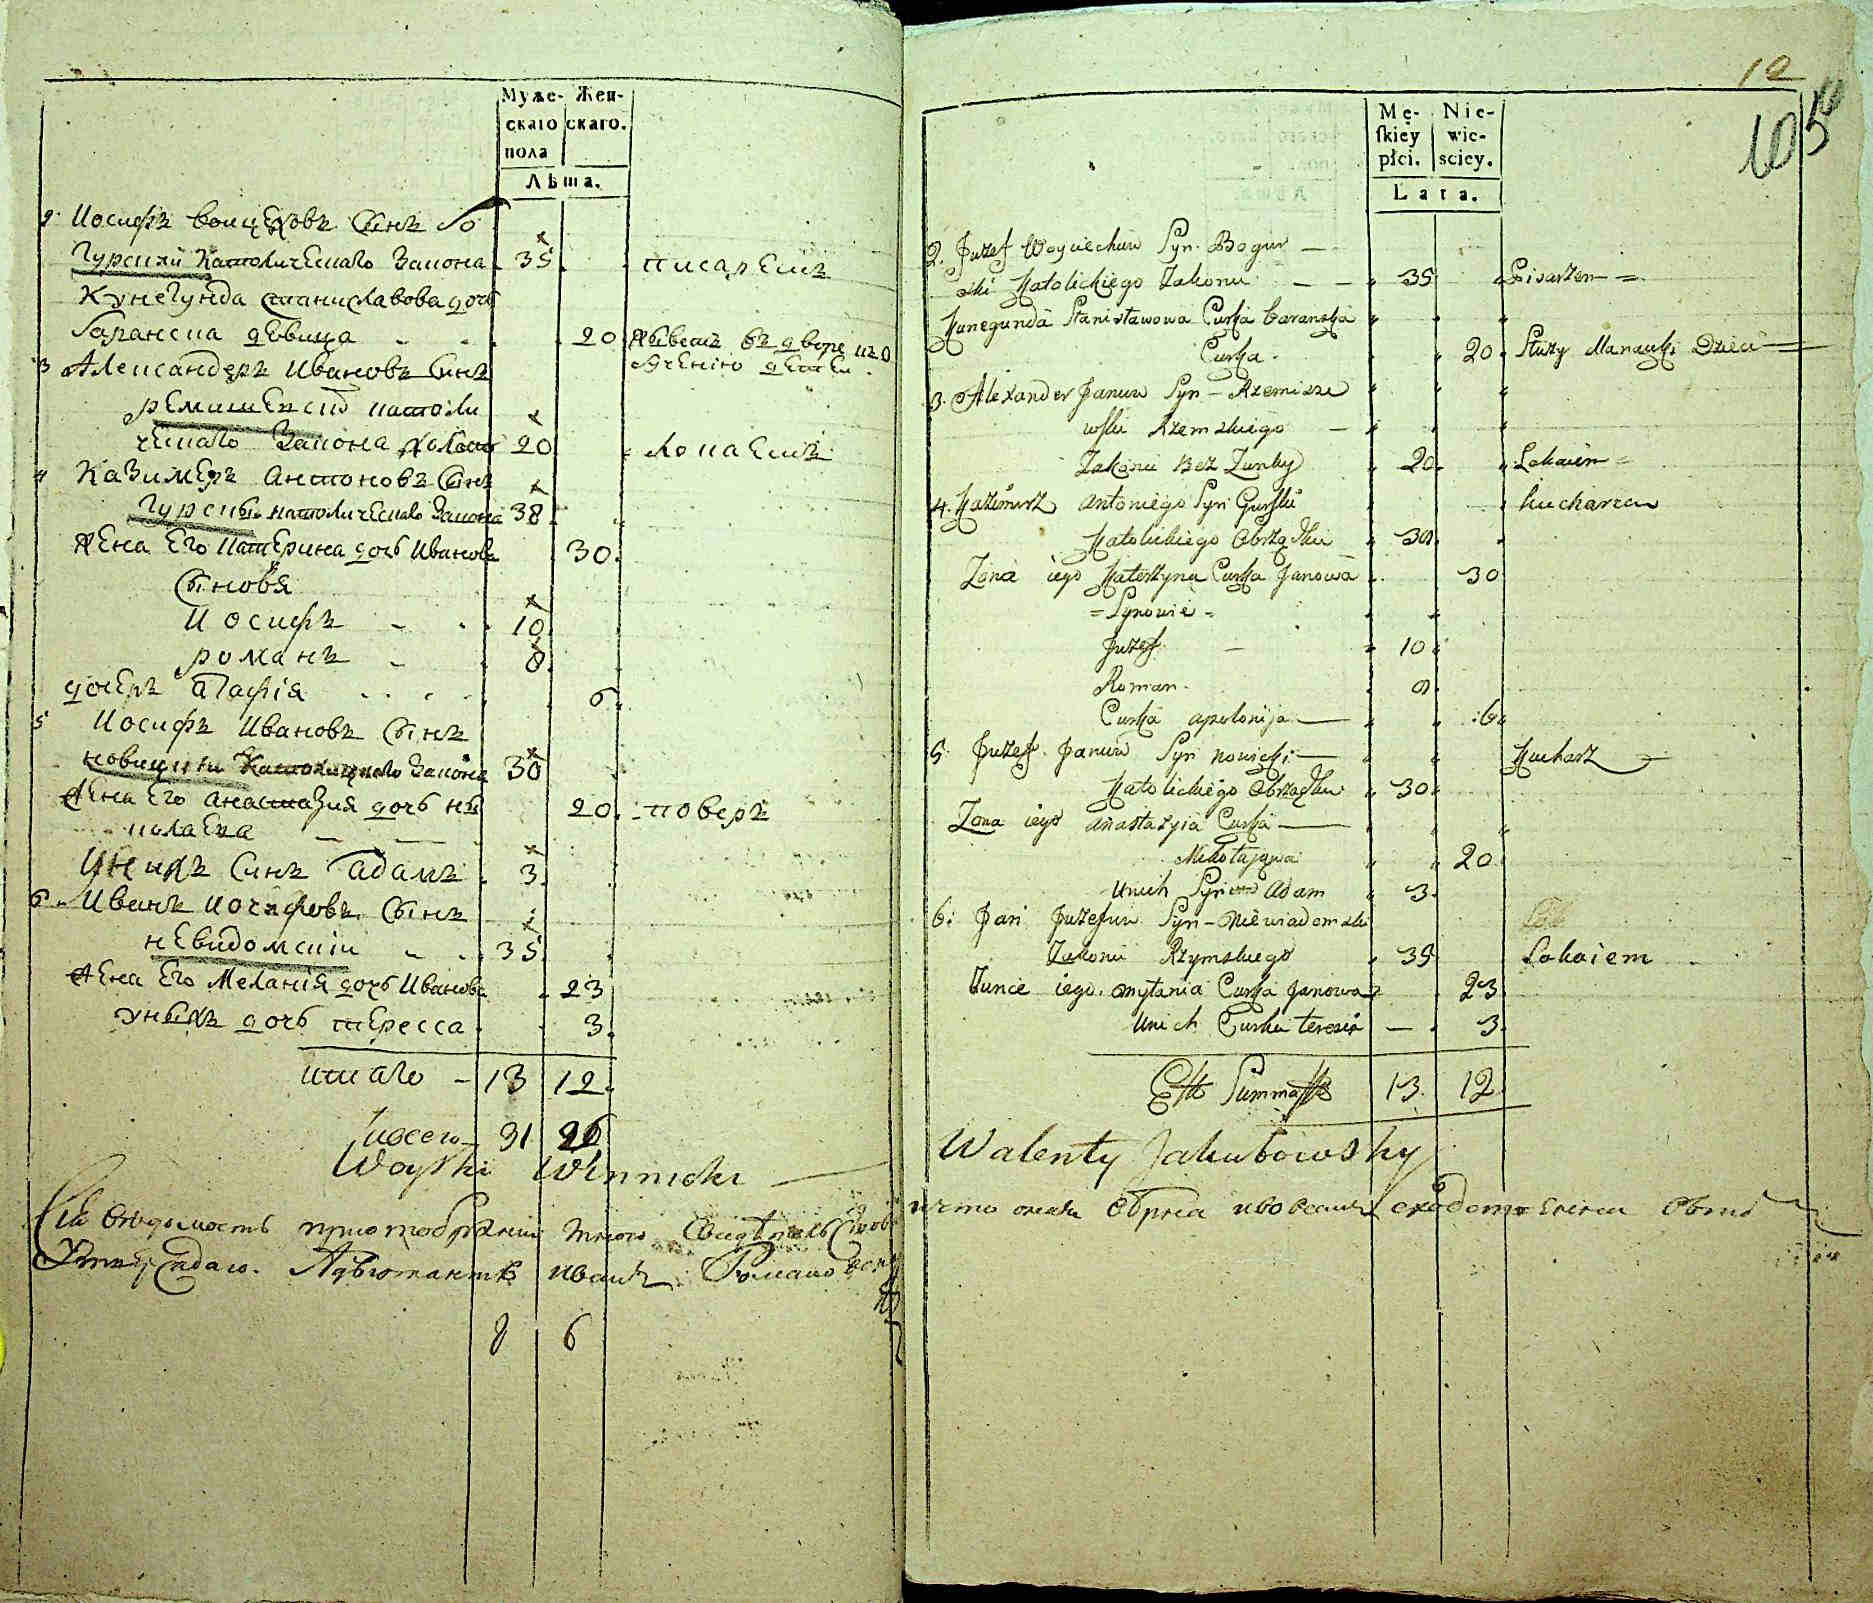 Муже- Жен-
скаго скаго.
пола
Лѣта.
2. Иосифъ воицеховъ Сынъ Бо
гурский Католическаго Закона 35 писаремъ
Кунегунда станиславова дочь
баранска девица 20 Живетъ въ дворе
3 Александеръ Ивановъ Сынъ
ремишевский католи
ческаго Закона холостъ 20 локаемъ
4 Казимеръ антоновъ Сынъ
гурский католическаго Закона 38
Жена Его Катерина дочь Иванова 30
Сыновя
Иосифъ 10
романъ 8
дочеръ агафія 6
5 Иосифъ Ивановъ Сынъ
новицкий Католицкаго Закона 30
Жена Его анастазия дочь ни 20 поверъ
колаева
Унихъ Синъ адамъ 3
6 Иванъ иосифовъ Сынъ
невидомский 35
Жена Его Меланія дочь Иванова 23
унихъ дочь тересса 3
итаго 13 12
всего 31 26
Woyski Winnicki
Сiя ведомость
Адъютантъ иванъ Романо
8 6
12
105
Mę- Nie-
skiey wie-
płci. sciey.
Lata.
2. Juzef Woyciechuw Syn Bogur —
ski Katolickiego Zakonu — — 35 Pisarzem =
Kunegunda Stanisławowa Curka baranska
Curka 20 Służy Manauki Dzieci
3. Alexander Januw Syn - Rzemisze
wski Rzemskiego —
Zakonu Bez Zunky 20 Lokaiem =
4. Kazimirz antoniego Syn Gurski kucharzem
Katolickiego Obrządku 38
Zona iego Katerzyna Curka Janowa 30
= Synowie -
Juzef — 10
Roman 8
Curka apolonija — 6
5. Juzef Januw Syn nowicki — Kucharz
Katolickiego Obrządku 30
Zona iego anastazyia Curka —
Mikołajowa 20
Unich Syn adam 3
6. Jan Juzefuw Syn - Niewiadomski
Zakonu Rzymskiego 35 Lokaiem
Zunce iego mylania Curka Janowa 23
Unich Curka teresia — 3
Summa 13 12
Walenty Jakubowsky